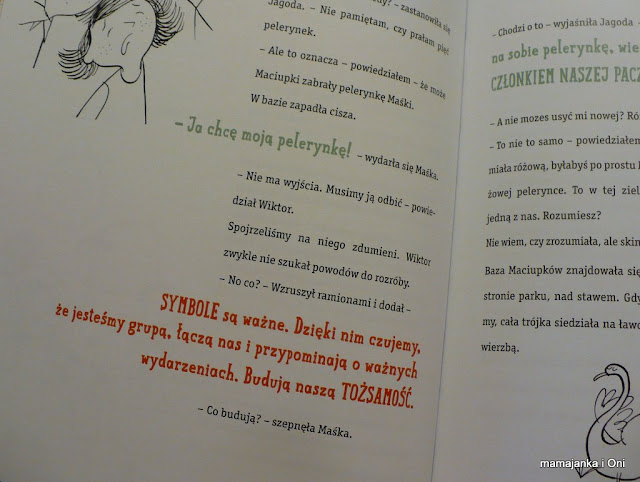 – zastanowiła się
Jagoda. – Nie pamiętam, czy prałam pięć
pelerynek.
– Ale to oznacza – powiedziałem – że może
Maciupki zabrały pelerynkę Maśki.
W bazie zapadła cisza.
– Ja chcę moją pelerynkę! – wydarła się Maśka.
– Nie ma wyjścia. Musimy ją odbić – powie-
dział Wiktor.
Spojrzeliśmy na niego zdumieni. Wiktor
zwykle nie szukał powodów do rozróby.
– No co? – Wzruszył ramionami i dodał –
SYMBOLE są ważne. Dzięki nim czujemy,
że jesteśmy grupą, łączą nas i przypominają o ważnych
wydarzeniach. Budują naszą TOŻSAMOŚĆ.
– Co budują? – szepnęła Maśka.
– Chodzi o to – wyjaśniła Jagoda –
na sobie pelerynkę, wie
CZŁONKIEM NASZEJ PACZ
– A nie mozes usyć mi nowej? Ró
– To nie to samo – powiedziałem
miała różową, byłabyś po prostu
żowej pelerynce. To w tej ziel
jedną z nas. Rozumiesz?
Nie wiem, czy zrozumiała, ale skin
Baza Maciupków znajdowała się
stronie parku, nad stawem. Gdy
my, cała trójka siedziała na ławc
wierzbą.
mamajanka i Oni